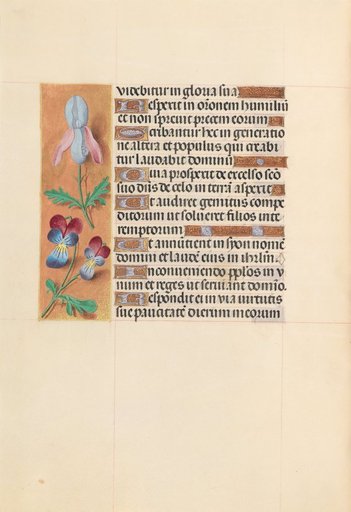 videbitur in gloria sua
Respexit in orõnem humiliũ
et non sprevit precem eorum
Scribantur hec in generatio
ne altera et populus qui creabi
tur laudabit dominũ
Quia prospexit de excelso scõ
suo dñs de celo in terrã aspexit
Ut audiret gemitus compe
ditorum ut solveret filios inte
remptorum
Ut annũtient in syon nomẽ
domini et laudẽ eius in ihrlm
In conveniendo pplos in v
num et reges ut serviant domino.
Respondit ei in via virtutis
sue paucitatẽ dierum meorum